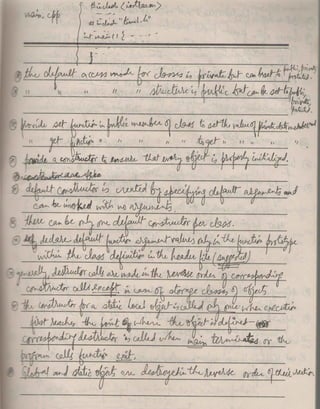 main.cpp { #include <iostream>
#include "time1.h"
int main() { - - -
}
the default access mode for classes is private but can be set to public, private, protected.
" " " " structure is public but can be set to public, private, protected.
provide set function in public member of class to set the value of private data members and
" get function " " " " to get " " " "
provide a constructor to ensure that every object is properly initialized.
default constructor is created by specifying default arguments and
can be invoked with no arguments.
there can be only one default constructor per class.
declare default function argument values only in the function prototype
within the class definition in the header file
generally, destructor calls are made in the reverse order of corresponding
constructor calls except in case of storage classes of objects.
the constructor for a static local object is called only once when execution
first reaches the point where the object is defined
corresponding destructor is called when main terminates or the
program calls function exit.
Global and static objects are destroyed in the reverse order of their creation